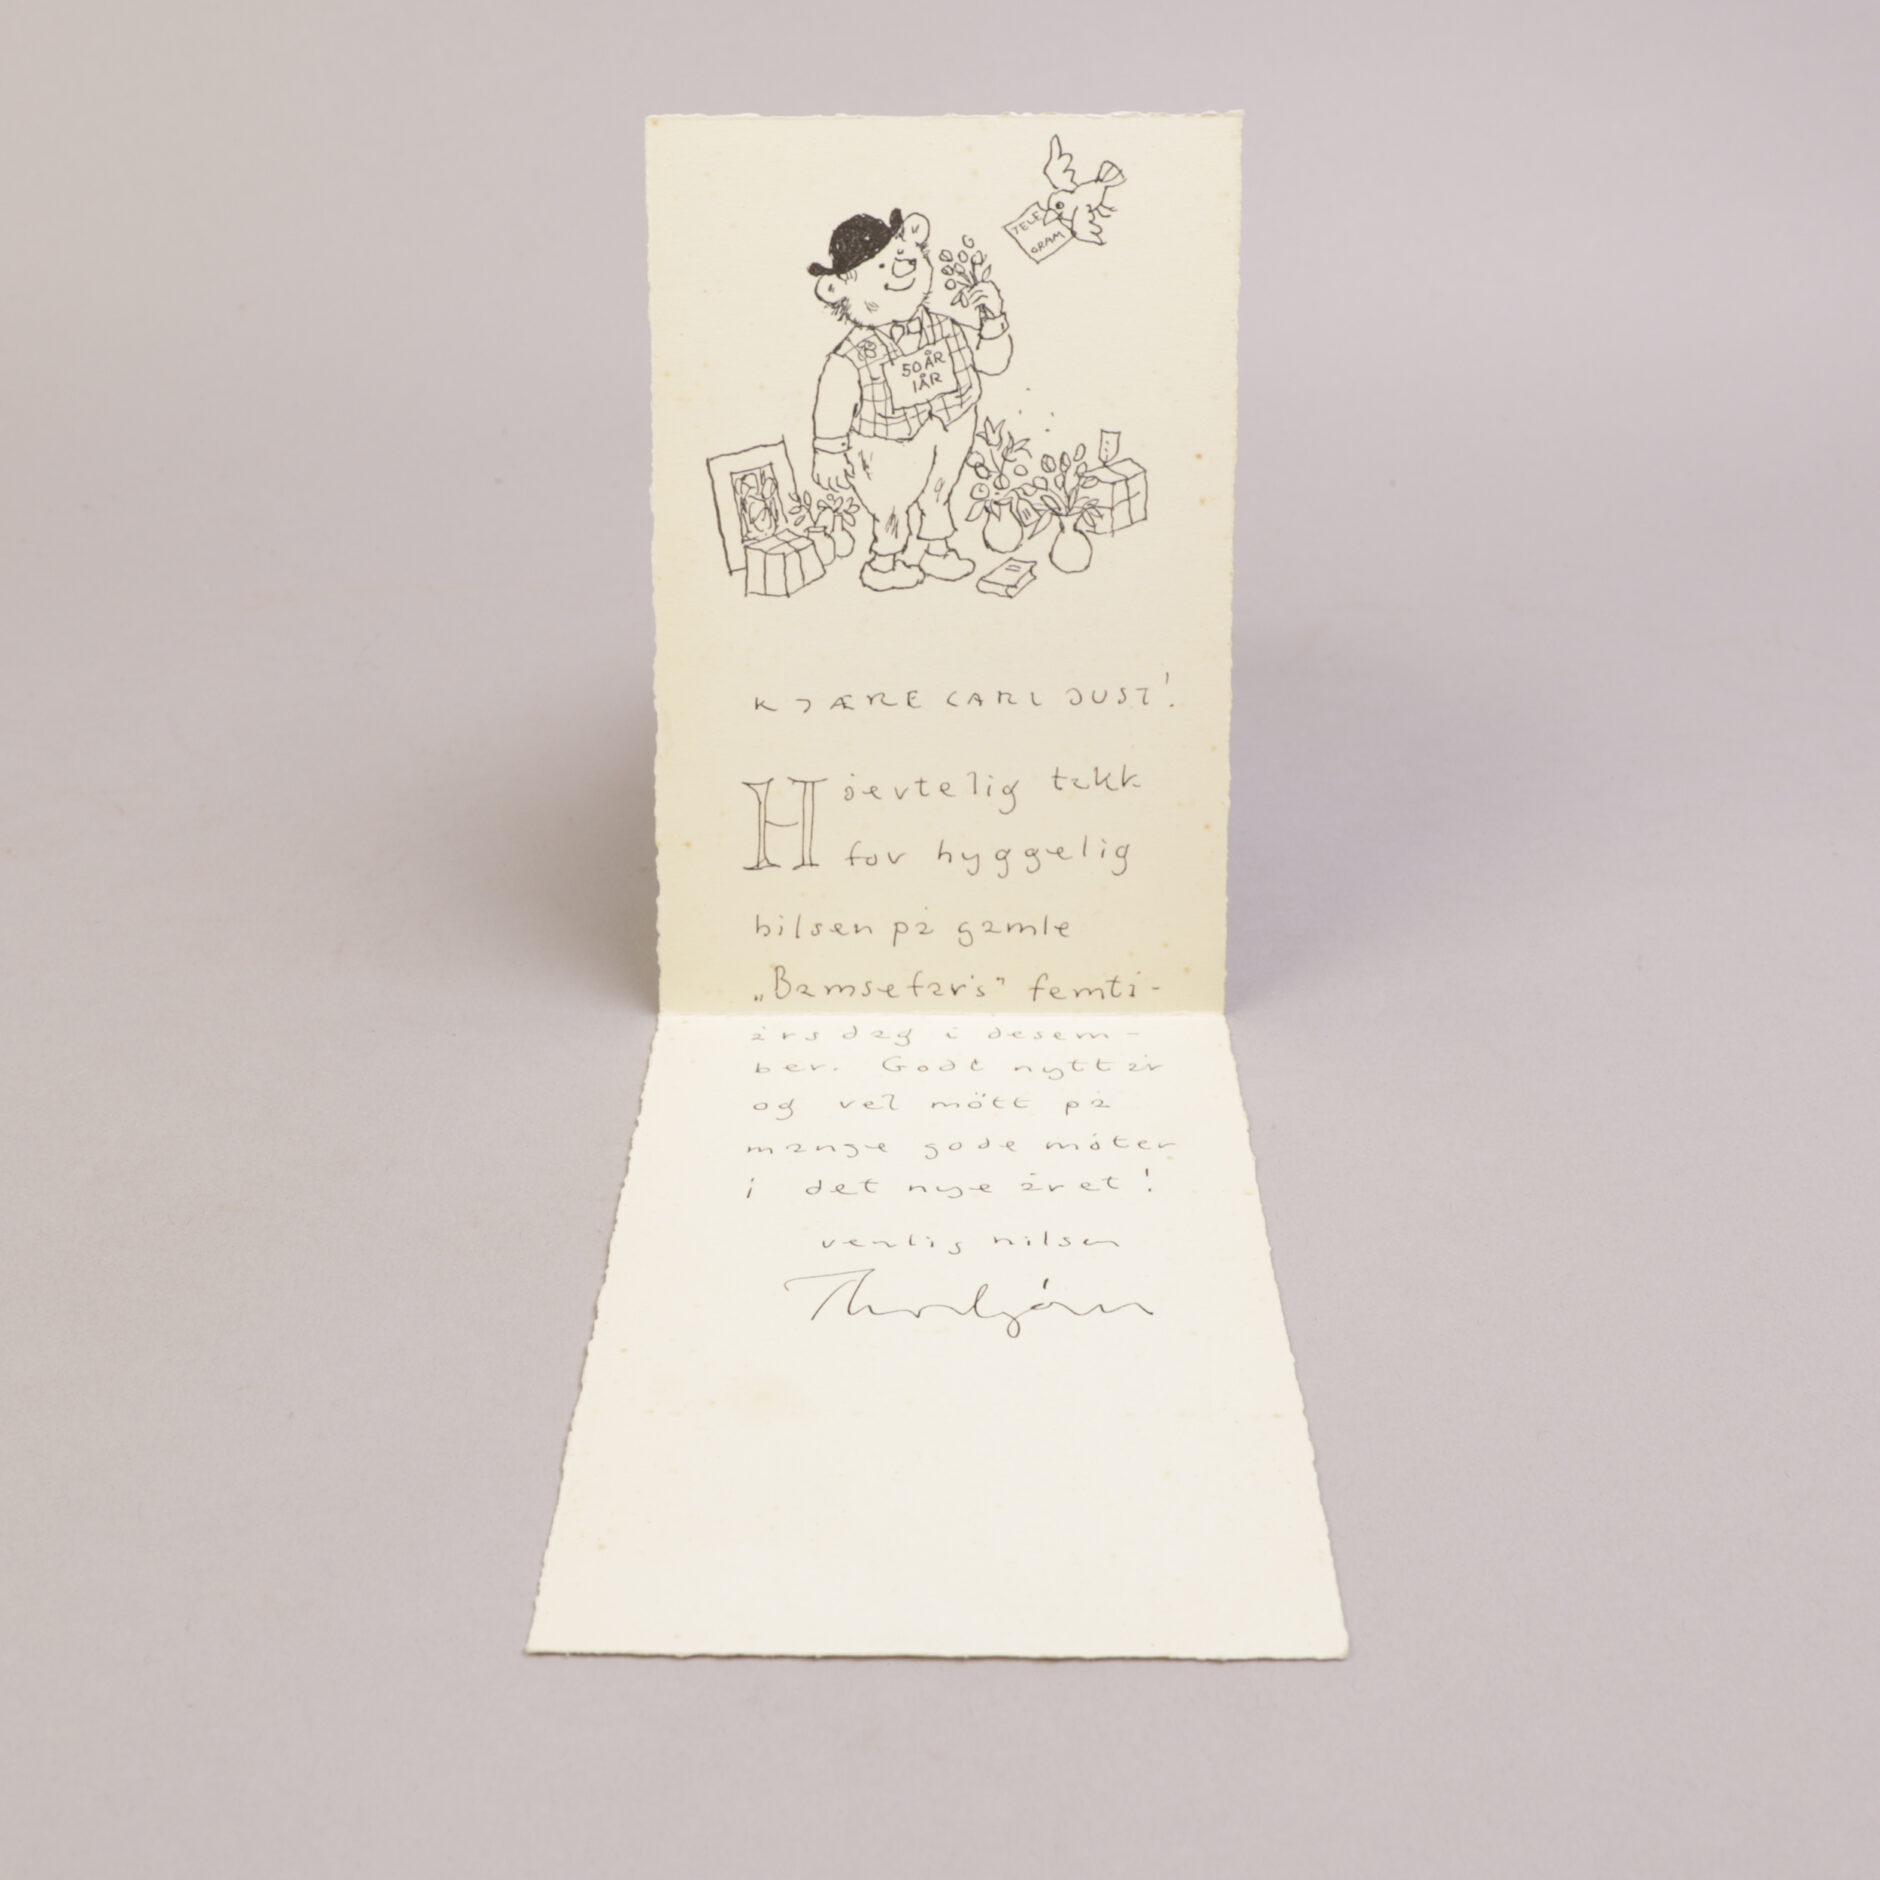 TELE
GRAM
50 ÅR
I ÅR
KJÆRE CARL JUST!
Hjertelig takk
for hyggelig
hilsen på gamle
„Bamsefar's” femti-
årsdag i desem-
ber. Godt nytt år
og vel mött på
mange gode móter
i det nye året!
venlig hilsen
Thorbjörn